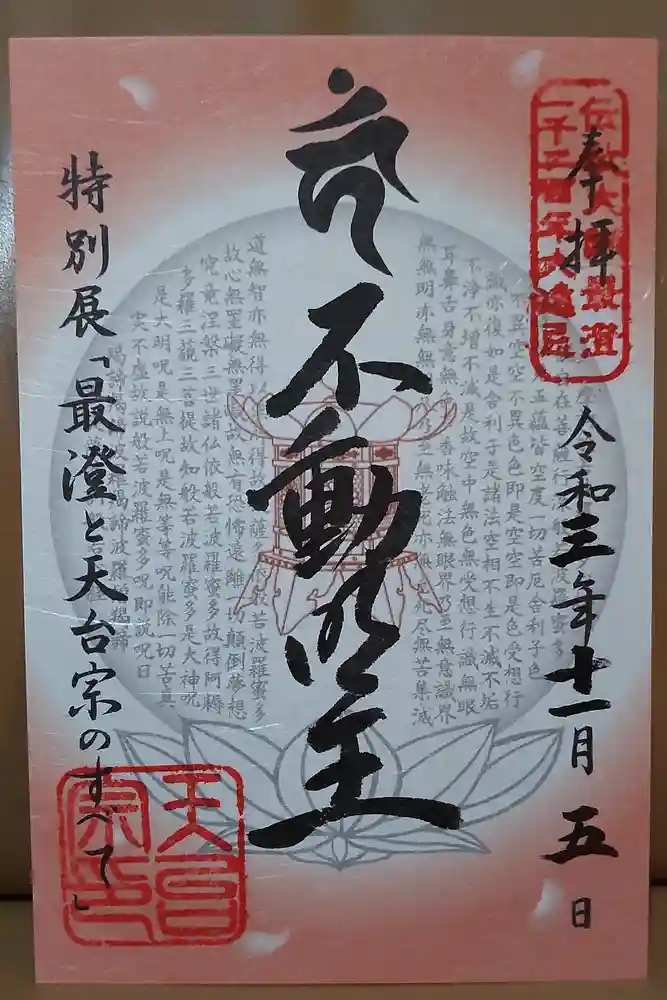 伝教大師最澄
一千二百年大遠忌
奉拝 令和三年十一月五日
不動明王
特別展「最澄と天台宗のすべて」
天台宗印
五蘊皆空度一切苦厄舎利子色
不異空空不異色色即是空空即是色受想行
識亦復如是舎利子是諸法空相不生不滅不垢
不浄不増不減是故空中無色無受想行識無眼
耳鼻舌身意無香味触法無眼界乃至無意識界
無無明亦無無乃至無老死亦無老死尽無苦集滅
道無智亦無得以得故薩依般若波羅蜜多
故心無罣礙無罣故無有恐怖遠離一切顛倒夢想
究竟涅槃三世諸仏依般若波羅蜜多故得阿耨
多羅三藐三菩提故知般若波羅蜜多是大神呪
是大明呪是無上呪是無等等呪能除一切苦真
実不虚故説般若波羅蜜多呪即説呪曰